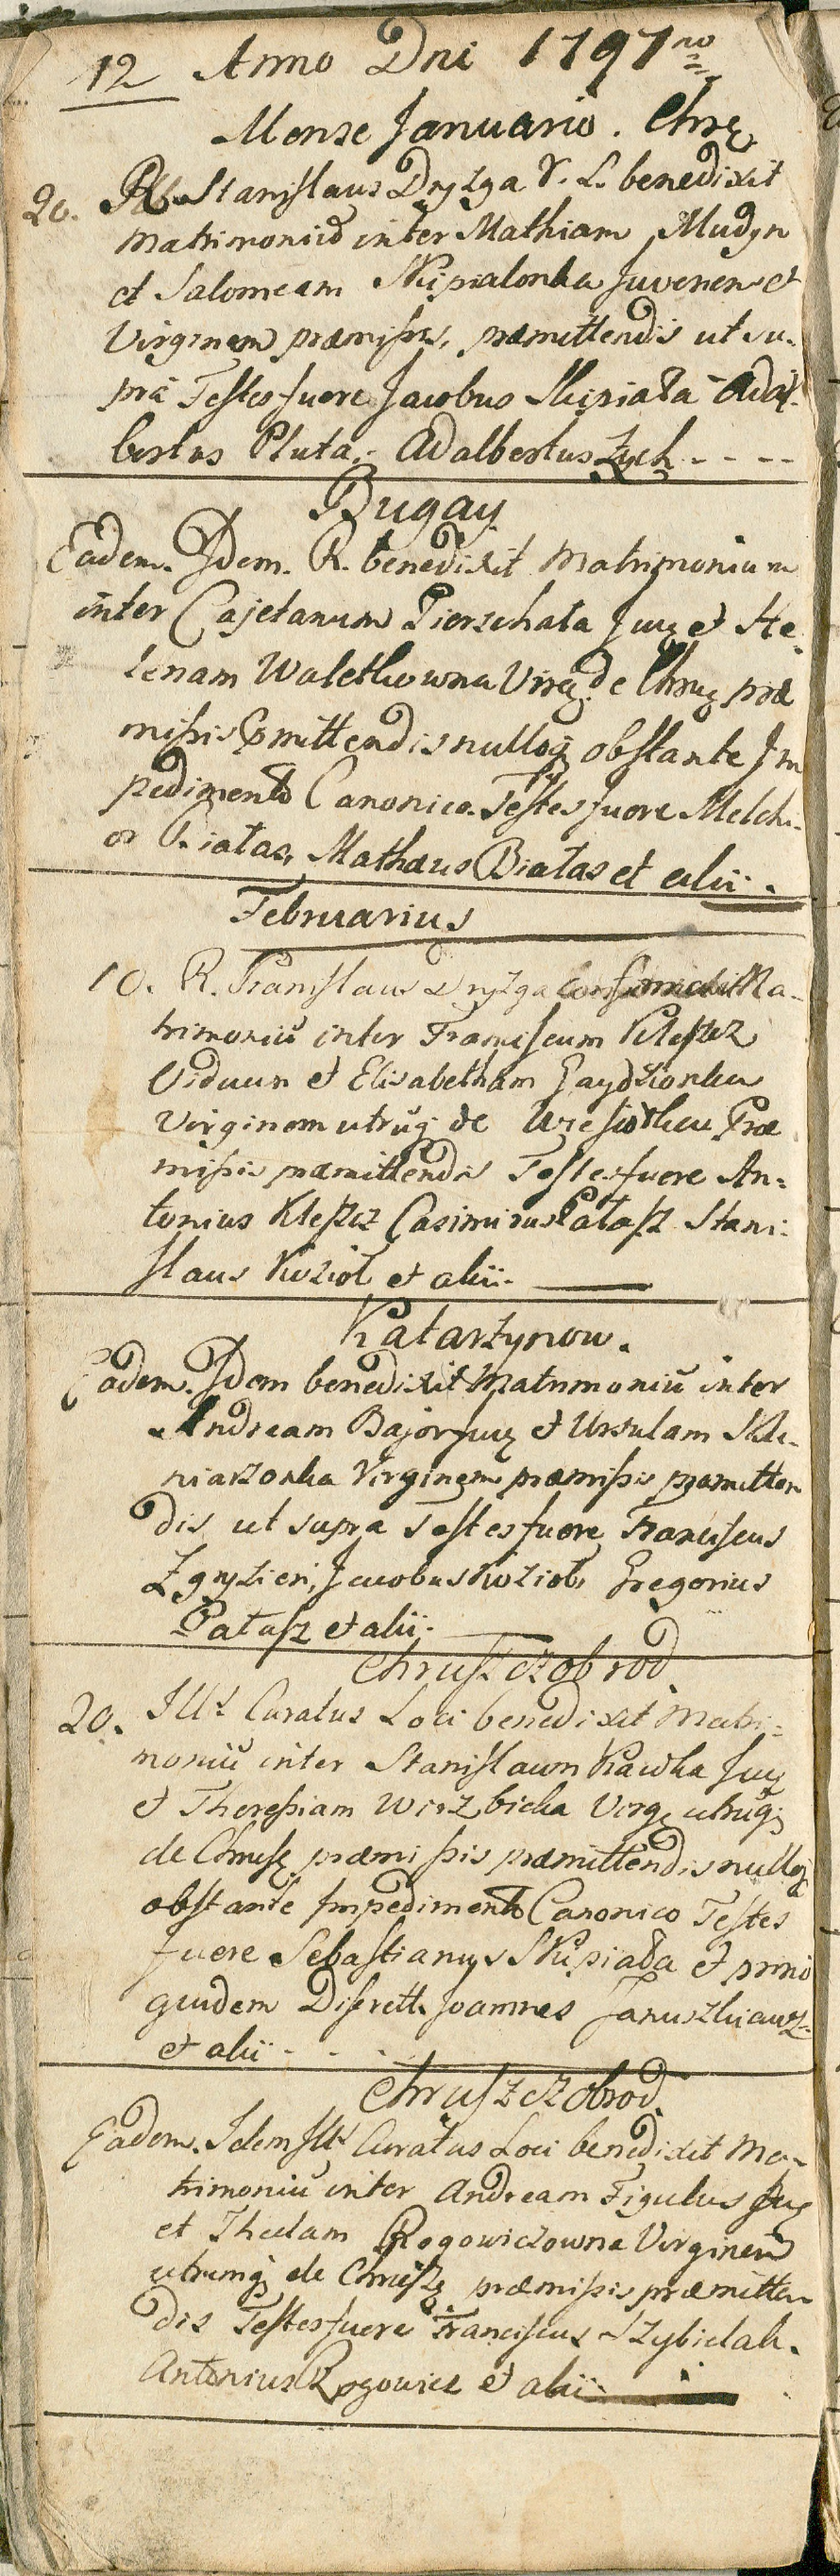 12 Anno Dni 1797mo
Mense Januario. Chrę
20. R. Stanislaus Dryzga V. L. benedixit
Matrimoniū inter Mathiam Mudyn
et Salomeam Skipialonka Juvenem et
Virginem præmissis, præmittendis ut su-
pra Testes fuere Jacobus Skipiała Adal-
bertus Pluta, Adalbertus Zych ----
Bugay
Eadem. Idem. R. benedixit Matrimonium
inter Cajetanum Pierschała Juvę et He-
lenam Walethowna Virg. de Chruę præ
missis & pmittendis nulloq obstante Im
pedimento Canonico. Testes fuere Melchi-
or Białas, Mathæus Białas et alii.
Februarius
10. R. Stanislaus Dryzga Ma-
trimoniū inter Franciscum Kleszcz
Viduum et Elisabetham Gaydzionka
Virginem utruq de Præ
missis præmittendis Testes fuere An-
tonius Kleszcz Casimirus Pałasz Stani-
slaus Kozioł et alii.
Katarzynow.
Eadem. Idem benedixit Matrimoniū inter
Andream Bajor Juvę et Ursulam Skle-
niarzonka Virginem præmissis præmitten
dis ut supra Testes fuere Franciscus
Jacobus Kozioł Gregorius
Pałasz et alii.
Chruszczobrod
20. Ills Curatus Loci benedixit Matri-
moniū inter Stanislaum Kawka Juvę
et Theressiam Wierzbicka Virgę utruq
de Chrusę præmissis præmittendis nulloq
obstante Impedimento Canonico Testes
fuere Sebastianus Skipiała et primo
quidem Joannes
et alii - - -
Chruszczobrod.
Eadem. Idem Ills Curatus Loci benedixit Ma-
trimoniū inter Andream Figulus Juvę
et Theclam Rogowiczowna Virginem
utrumq de Chruszę præmissis præmitten
dis Testes fuere Franciscus Szybielak.
Antonius Rogowicz et alii